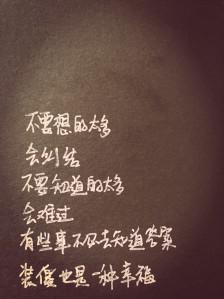 不要想的太多
会纠结
不要知道的太多
会难过
有些事不必去知道答案
装傻也是一种幸福